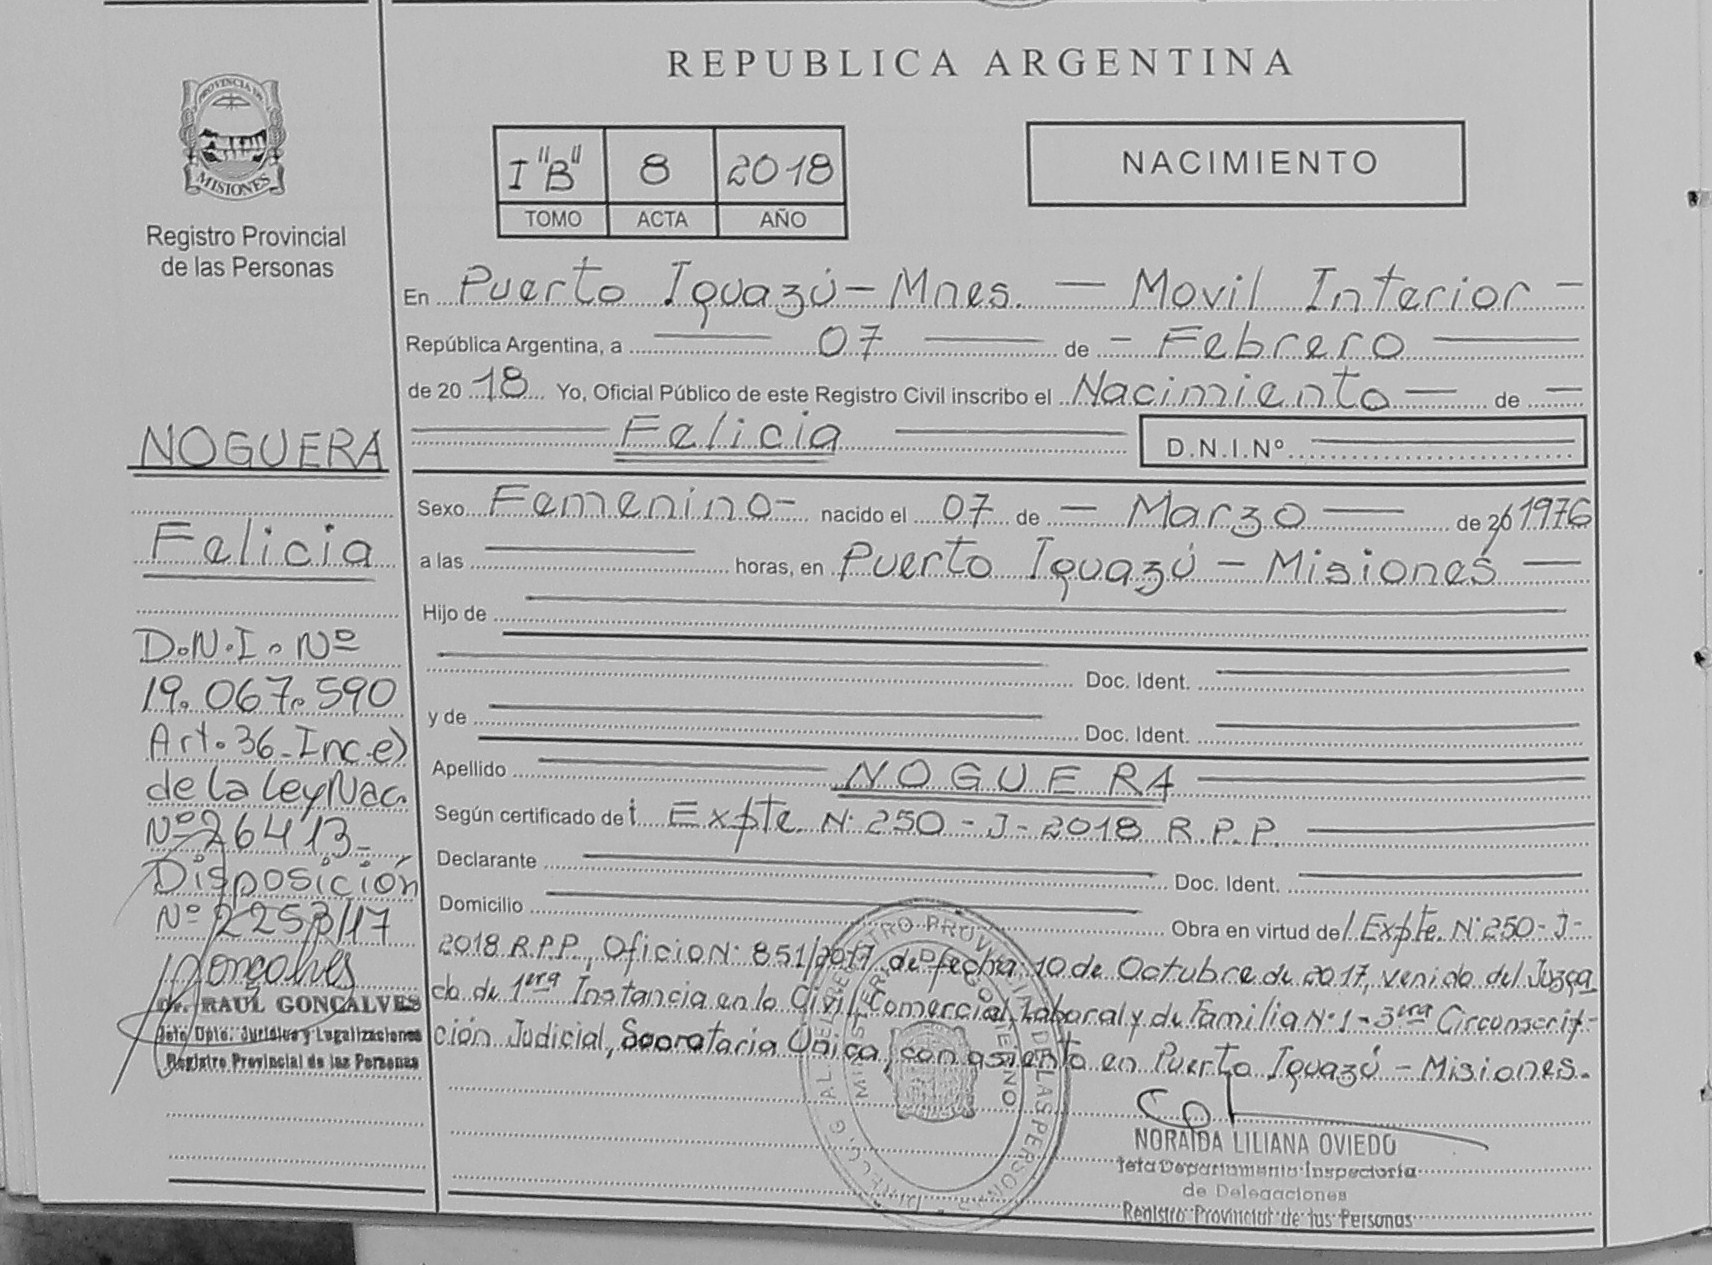 REPUBLICA ARGENTINA
PROVINCIA DE
MISIONES
Registro Provincial
de las Personas
I "B" 8 2018
TOMO ACTA AÑO
NACIMIENTO
En Puerto Iguazú - Mnes. - Movil Interior -
República Argentina, a 07 de - Febrero
de 20 18 Yo, Oficial Público de este Registro Civil inscribo el Nacimiento de
Felicia D.N.I.Nº
Sexo Femenino - nacido el 07 de - Marzo de 20 1976
a las horas, en Puerto Iguazú - Misiones
Hijo de
Doc. Ident.
y de Doc. Ident.
Apellido NOGUERA
Según certificado de Expte N. 250 - J - 2018 R.P.P.
Declarante Doc. Ident.
Domicilio Obra en virtud de Expte. N. 250 - J -
2018 R.P.P., Oficio N. 851/2017 de fecha 10 de Octubre de 2017, venido del Juzga
do de 1era Instancia en lo Civil, Comercial, Laboral y de Familia Nº 1 - 3era Circunscrip-
ción Judicial, Secretaría Única, con asiento en Puerto Iguazú - Misiones.
NORAIDA LILIANA OVIEDO
Jefa Departamento Inspectoría
de Delegaciones
Registro Provincial de las Personas
NOGUERA
Felicia
D.N.I. Nº
19.067.590
Art. 36 - Inc. e)
de la Ley Nac.
Nº 26413 -
Disposición
Nº 2253/17
Goncalves
Dr. RAUL GONCALVES
Jefe Dpto. Jurídico y Legalizaciones
Registro Provincial de las Personas